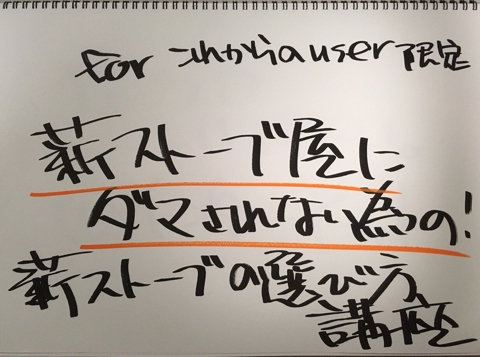 for これからのuser限定
薪ストーブ屋に
ダマされない為の!
薪ストーブの選び方
講座